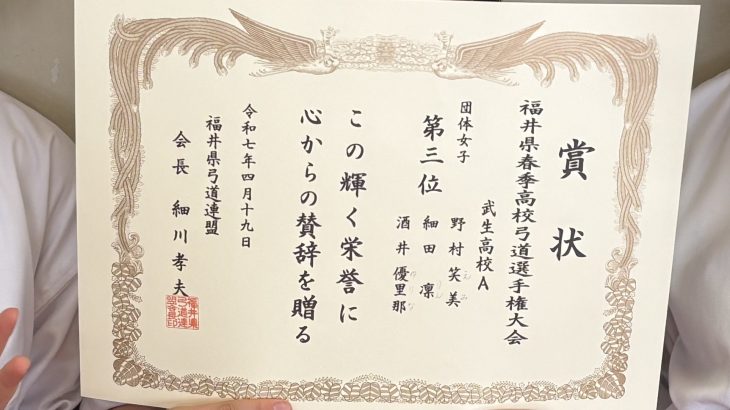 賞状
福井県春季高校弓道選手権大会
武生高校A
団体女子
第三位
野村笑美
細田凛
酒井優里那
この輝く栄誉に
心からの賛辞を贈る
令和七年四月十九日
福井県弓道連盟
会長 細川孝夫